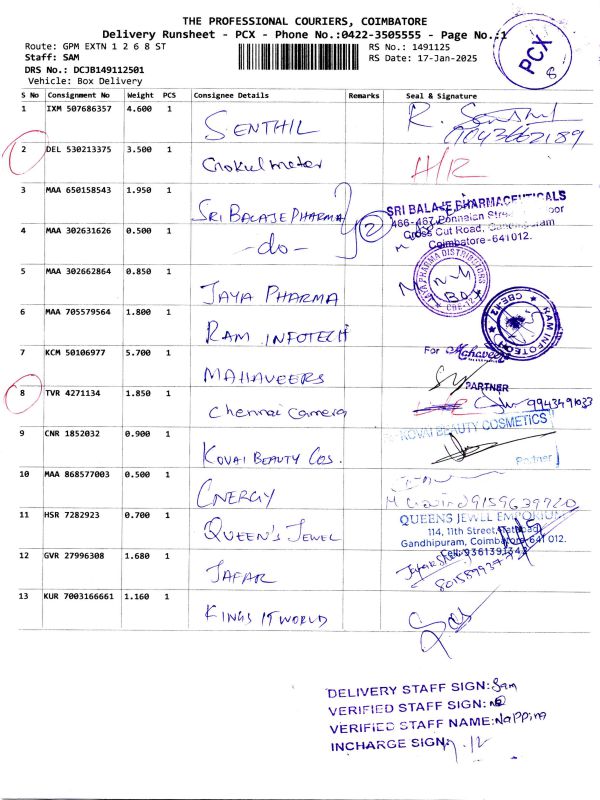 THE PROFESSIONAL COURIERS, COIMBATORE
Delivery Runsheet - PCX - Phone No.:0422-3505555 - Page No.:1
Route: GPM EXTN 1 2 6 8 ST RS No.: 1491125
Staff: SAM RS Date: 17-Jan-2025
DRS No.: DCJB149112501
Vehicle: Box Delivery
PCX
8
S No Consignment No Weight PCS Consignee Details Remarks Seal & Signature
1 IXM 507686357 4.600 1 SENTHIL R. Senthil 9043662189
2 DEL 530213375 3.500 1 Gokul meter H/R
3 MAA 650158543 1.950 1 SRI BALAJE PHARMA 2
SRI BALAJE PHARMACEUTICALS
466-467, Ponnaian Street
Cross Cut Road, Gandhipuram
Coimbatore - 641012.
4 MAA 302631626 0.500 1 -do-
5 MAA 302662864 0.850 1 JAYA PHARMA
JAYA PHARMA DISTRIBUTORS
CBE-12
6 MAA 705579564 1.800 1 RAM INFOTECH
RAM INFOTECH
CBE-12
7 KCM 50106977 5.700 1 MAHAVEERS
For Mahaveers
PARTNER
8 TVR 4271134 1.850 1 Chennai camera 9943491033
9 CNR 1852032 0.900 1 KOVAI BEAUTY COS.
KOVAI BEAUTY COSMETICS
Partner
10 MAA 868577003 0.500 1 CNERGY 9159639920
11 HSR 7282923 0.700 1 QUEEN'S JEWEL
QUEENS JEWEL EMPORIUM
114, 11th Street,
Gandhipuram, Coimbatore-641 012.
Cell:
12 GVR 27996308 1.680 1 JAFAR
13 KUR 7003166661 1.160 1 KINGS IT WORLD
DELIVERY STAFF SIGN: Sam
VERIFIED STAFF SIGN:
VERIFIED STAFF NAME: Nappina
INCHARGE SIGN: